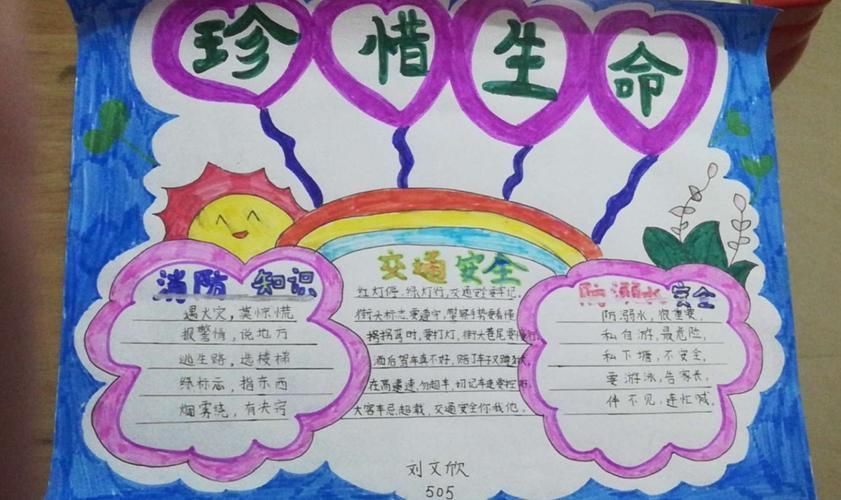 珍惜生命
消防知识
遇火灾，莫惊慌
报警情，说地方
逃生路，选楼梯
绿标志，指东西
烟雾绕，有夫守
交通安全
红灯停，绿灯行，交通规要牢记。
街头标志要遵守，警察手势要看懂
拐弯时，要打灯，街头巷尾要慢行
酒后驾车真不好，赔了车又蹲
在高速，勿超车，切记车速要控
大客车忌超载，交通安全你我他。
防溺水安全
防溺水，很重要，
私自游，最危险，
私下塘，不安全，
要游泳，告家长，
伴不见，连忙喊。
刘文欣
505